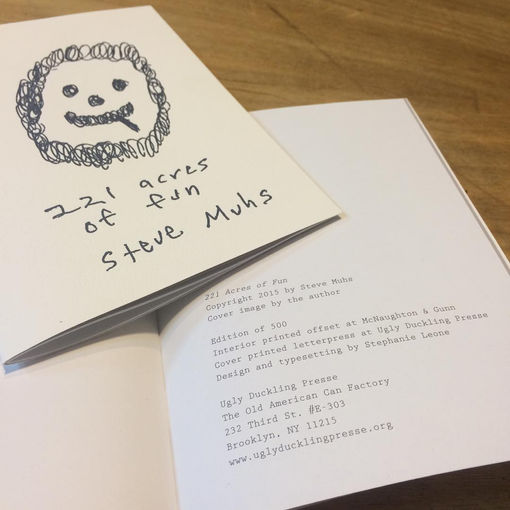 221 acres
of fun
Steve Muhs
221 Acres of Fun
Copyright 2015 by Steve Muhs
Cover image by the author
Edition of 500
Interior printed offset at McNaughton & Gunn
Cover printed letterpress at Ugly Duckling Presse
Design and typesetting by Stephanie Leone
Ugly Duckling Presse
The Old American Can Factory
232 Third St. #E-303
Brooklyn, NY 11215
www.uglyducklingpresse.org